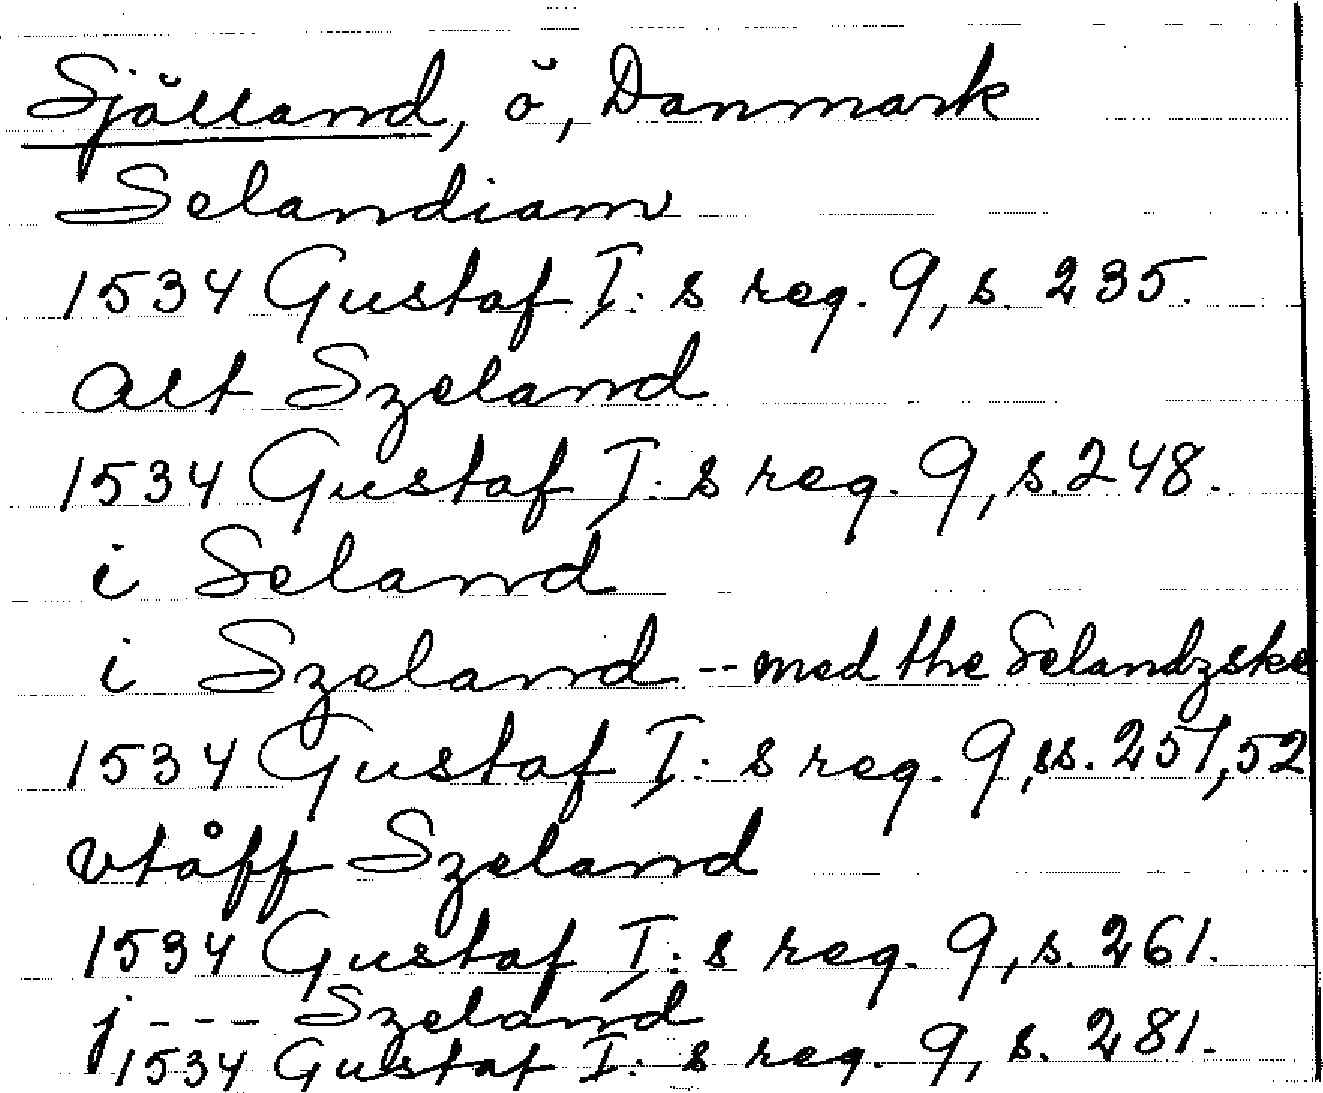 Själland, ö, Danmark
Selandiam
1534 Gustaf I:s reg. 9, s. 235.
alt Szeland
1534 Gustaf I:s reg. 9, s. 248.
i Seland
i Szeland -- med the Selandzske
1534 Gustaf I:s reg. 9, ss. 251, 52
vtåff Szeland
1534 Gustaf I:s reg. 9, s. 261.
j --- Szeland
1534 Gustaf I:s reg. 9, s. 281.